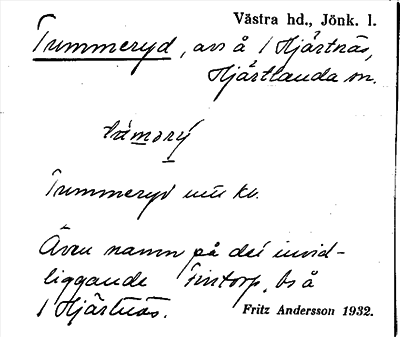 Västra hd., Jönk. l.
Trummeryd, avs å 1 Hjärtnäs,
Hjärtlanda sn.
Trummeryd uttl kv.
Även namn på det invid-
liggande Fintorp, bs å
1 Hjärtnäs.
Fritz Andersson 1932.